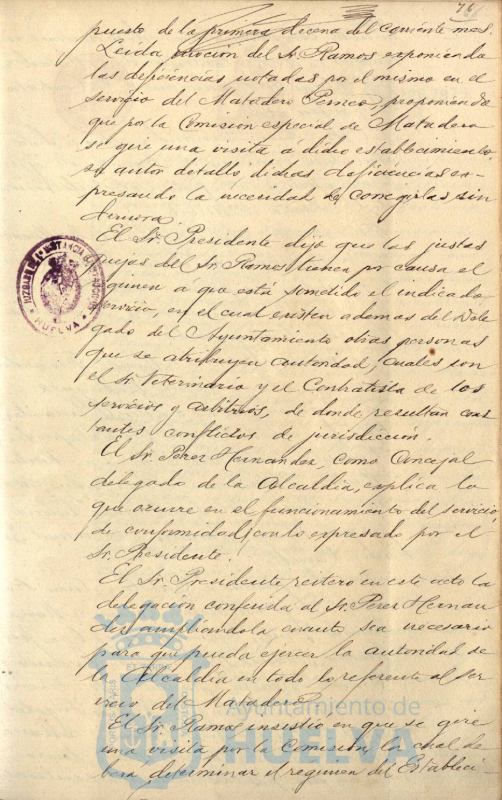 76
puesto de la primera decena del corriente mes.
Leida moción del Sr. Ramos exponiendo
las deficiencias notadas por el mismo en el
servicio del Matadero Perneo, proponiendo
que por la Comisión especial de Matadero
se gire una visita á dicho establecimiento
su autor detalló dichas deficiencias ex-
presando la necesidad de corregirlas sin
demora.
El Sr. Presidente dijo que las justas
quejas del Sr. Ramos tienen por causa el
régimen a que está sometido el indicado
servicio, en el cual existen además del Dele
gado del Ayuntamiento otras personas
que se atribuyen autoridad, cuales son
el Sr. Veterinario y el Contratista de los
servicios y arbitrios, de donde resultan cons
tantes conflictos de jurisdicción.
El Sr. Perez Hernandez, como Concejal
delegado de la Alcaldia, explica lo
que ocurre en el funcionamiento del servicio
de conformidad con lo expresado por el
Sr. Presidente.
El Sr. Presidente reiteró en este acto la
delegación conferida al Sr. Perez Hernan
dez ampliandola cuanto sea necesario
para que pueda ejercer la autoridad de
la Alcaldia en todo lo referente al ser
vicio del Matadero
El Sr. Ramos insistió en que se gire
una visita por la Comisión, la cual de
berá determinar el regimen del Estableci-
HUELVA
Ayuntamiento de
HUELVA